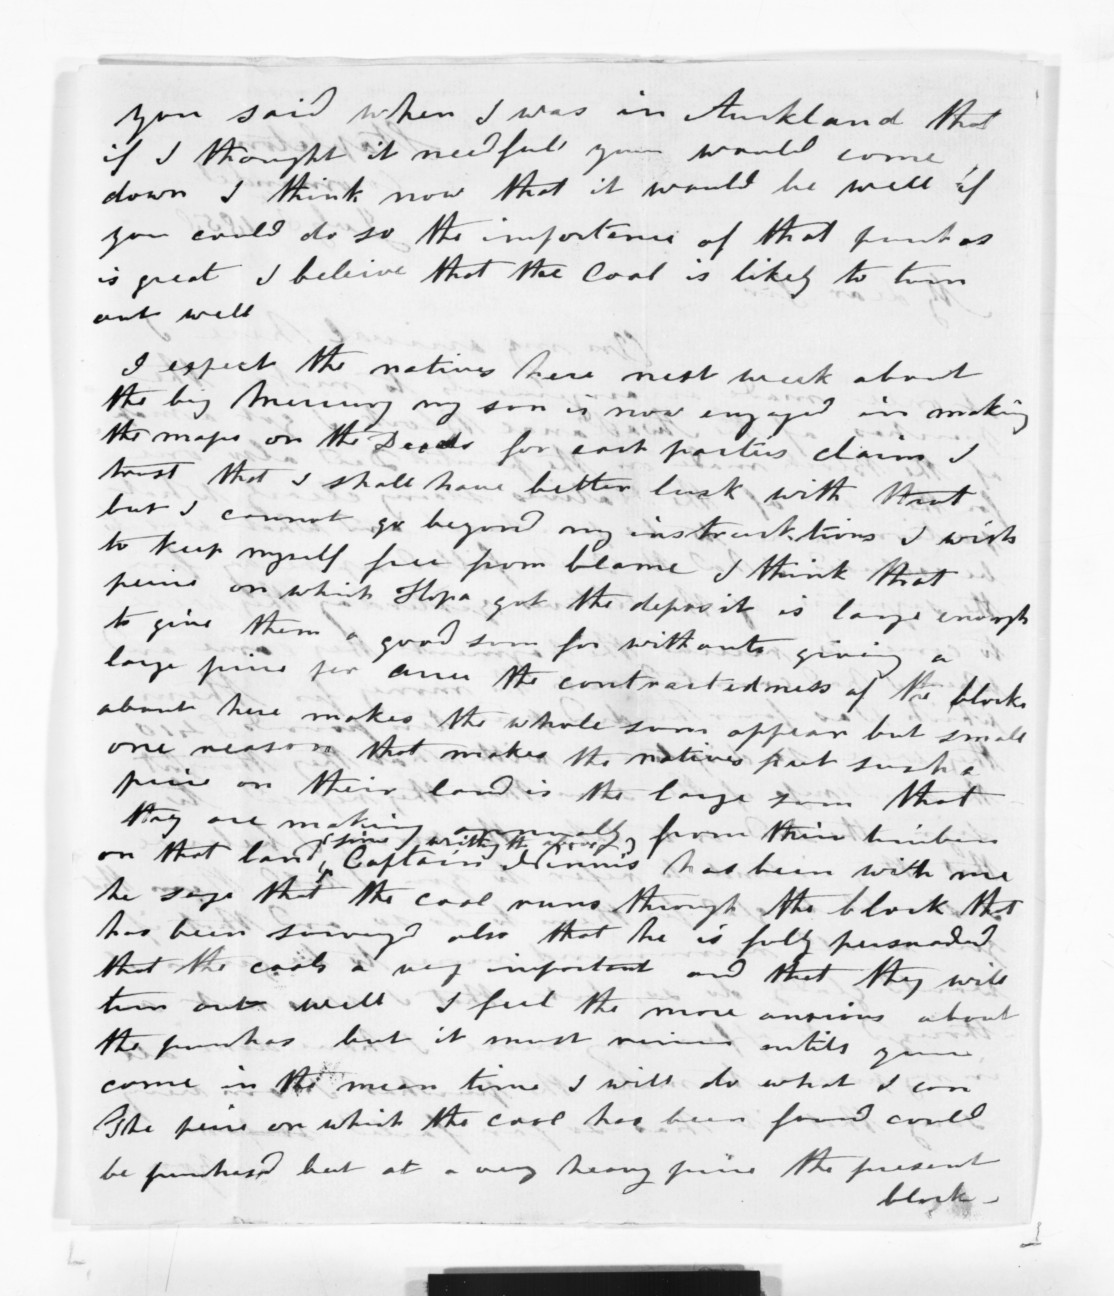 you said when I was in Auckland that
if I thought it needfull you would come
down I think now that it would be well if
you could do so the importance of that purchas
is great I beleive that the Coal is likely to turn
out well
I expect the natives here next week about
the big Mercury my son is now engaged in making
the maps on the Deeds for each parties claim I
trust that I shall have better lusk with that
but I cannot go beyond my instrucktions I wish
to keep myself free from blame I think that
peice on which Hopa got the deposit is large enough
to give them a good sum for without giving a
large price per acre the contractedness of the blocks
about here makes the whole sum appear but small
one reason that makes the natives put such a
price on their land is the large sum that
they are making annually from their timber
on that land (since writing the above) Captain Ninnis has been with me
he says that the coal runs through the block that
has been surveyd also that he is fully persuaded
that the coals a very important and that they will
turn out well I feel the more anxious about
the purchas but it must until you
come in the mean time I will do what I can
The peice on which the coal has been found could
be purchesd but at a very heavy price the present
block